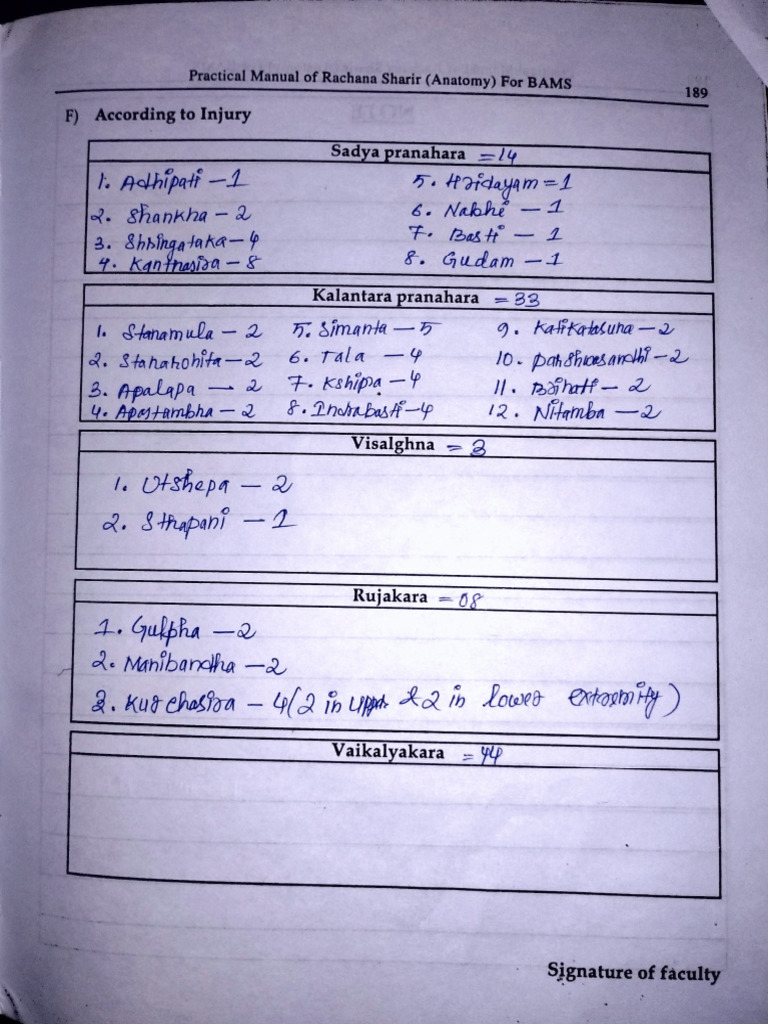 Practical Manual of Rachana Sharir (Anatomy) For BAMS
189
F) According to Injury
Sadya pranahara = 14
1. Adhipati - 1
2. Shankha - 2
3. Shringataka - 4
4. Kanthasira - 8
5. Hridayam = 1
6. Nabhi - 1
7. Basti - 1
8. Gudam - 1
Kalantara pranahara = 33
1. Stanamula - 2
2. Stanarohita - 2
3. Apalapa - 2
4. Apastambha - 2
5. Simanta - 5
6. Tala - 4
7. Kshipra - 4
8. Indrabasti - 4
9. Katikataruna - 2
10. Parshwasandhi - 2
11. Brihati - 2
12. Nitamba - 2
Visalghna = 3
1. Utshepa - 2
2. Sthapani - 1
Rujakara = 08
1. Gulpha - 2
2. Manibandha - 2
3. Kurchasira - 4 (2 in upper & 2 in lower extremity)
Vaikalyakara = 44
Signature of faculty